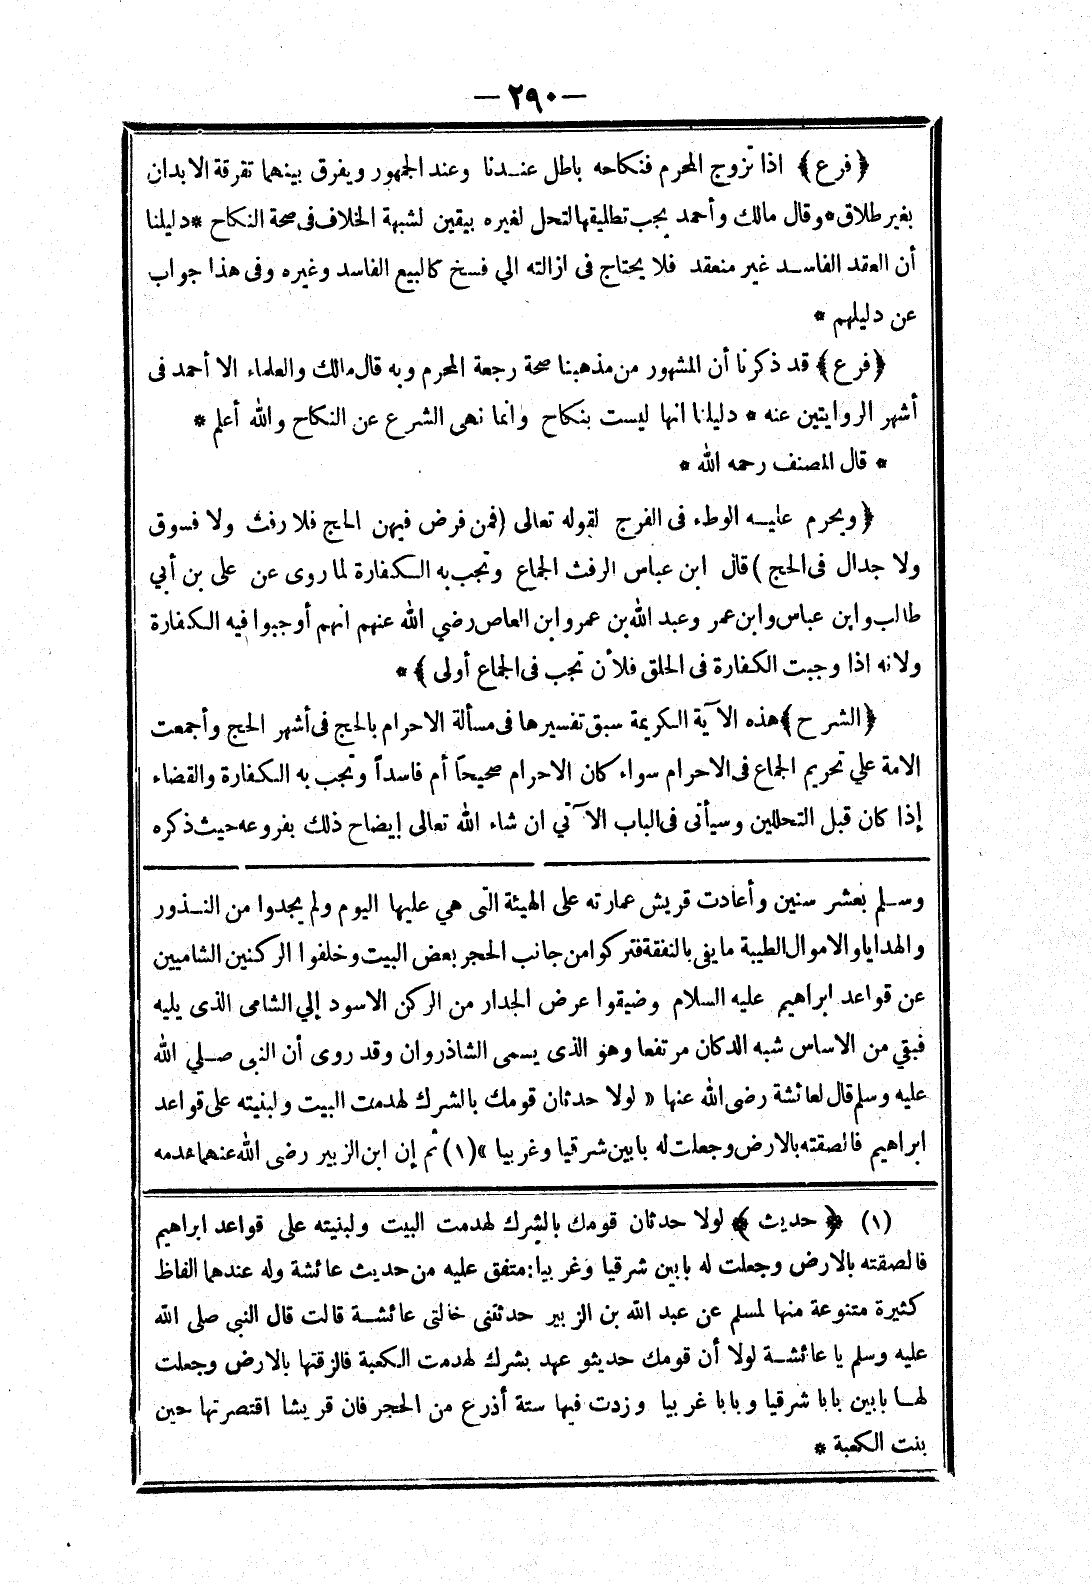 — ٢٩٠ —
﴿ فرع ﴾ اذا تزوج المحرم فنكاحه باطل عندنا وعند الجمهور ويفرق بينهما تفرقة الابدان
بغير طلاق * وقال مالك وأحمد يجب تطليقها لتحل لغيره بيقين لشبهة الخلاف فى صحة النكاح * دليلنا
أن العقد الفاسد غير منعقد فلا يحتاج فى ازالته الي فسخ كالبيع الفاسد وغيره وفى هذا جواب
عن دليلهم *
﴿ فرع ﴾ قد ذكرنا أن المشهور من مذهبنا صحة رجعة المحرم وبه قال مالك والعلماء الا أحمد فى
أشهر الروايتين عنه * دليلنا انها ليست بنكاح وانما نهى الشرع عن النكاح والله أعلم *
* قال المصنف رحمه الله *
﴿ ويحرم عليه الوطء فى الفرج لقوله تعالى (فمن فرض فيهن الحج فلا رفث ولا فسوق
ولا جدال فى الحج ) قال ابن عباس الرفث الجماع وتجب به الكفارة لما روى عن على بن أبي
طالب وابن عباس وابن عمر وعبد الله بن عمرو ابن العاص رضي الله عنهم انهم أوجبوا فيه الكفارة
ولانه اذا وجبت الكفارة فى الحلق فلأن تجب فى الجماع أولى ﴾ *
﴿ الشرح ﴾ هذه الآية الكريمة سبق تفسيرها فى مسألة الاحرام بالحج فى أشهر الحج وأجمعت
الامة علي تحريم الجماع فى الاحرام سواء كان الاحرام صحيحاً أم فاسداً وتجب به الكفارة والقضاء
إذا كان قبل التحللين وسيأتى فى الباب الآتي ان شاء الله تعالى إيضاح ذلك بفروعه حيث ذكره
وسلم بعشر سنين وأعادت قريش عمارته على الهيئة التى هي عليها اليوم ولم يجدوا من النذور
والهدايا والاموال الطيبة ما يفى بالنفقة فتركوا من جانب الحجر بعض البيت وخلفوا الركنين الشاميين
عن قواعد ابراهيم عليه السلام وضيقوا عرض الجدار من الركن الاسود إلي الشامى الذى يليه
فبقي من الاساس شبه الدكان مرتفعا وهو الذى يسمى الشاذروان وقد روى أن النبى صلي الله
عليه وسلم قال لعائشة رضى الله عنها « لولا حدثان قومك بالشرك لهدمت البيت ولبنيته على قواعد
ابراهيم فالصقته بالارض وجعلت له بابين شرقيا وغربيا » (١) ثم إن ابن الزبير رضى الله عنهما هدمه
(١) ﴿ حديث ﴾ لولا حدثان قومك بالشرك لهدمت البيت ولبنيته على قواعد ابراهيم
فالصقته بالارض وجعلت له بابين شرقيا وغربيا : متفق عليه من حديث عائشة وله عندهما الفاظ
كثيرة متنوعة منها لمسلم عن عبد الله بن الزبير حدثتنى خالتى عائشة قالت قال النبى صلى الله
عليه وسلم يا عائشة لولا أن قومك حديثو عهد بشرك لهدمت الكعبة فالزقتها بالارض وجعلت
لها بابين بابا شرقيا وبابا غربيا وزدت فيها ستة أذرع من الحجر فان قريشا اقتصرتها حين
بنت الكعبة *